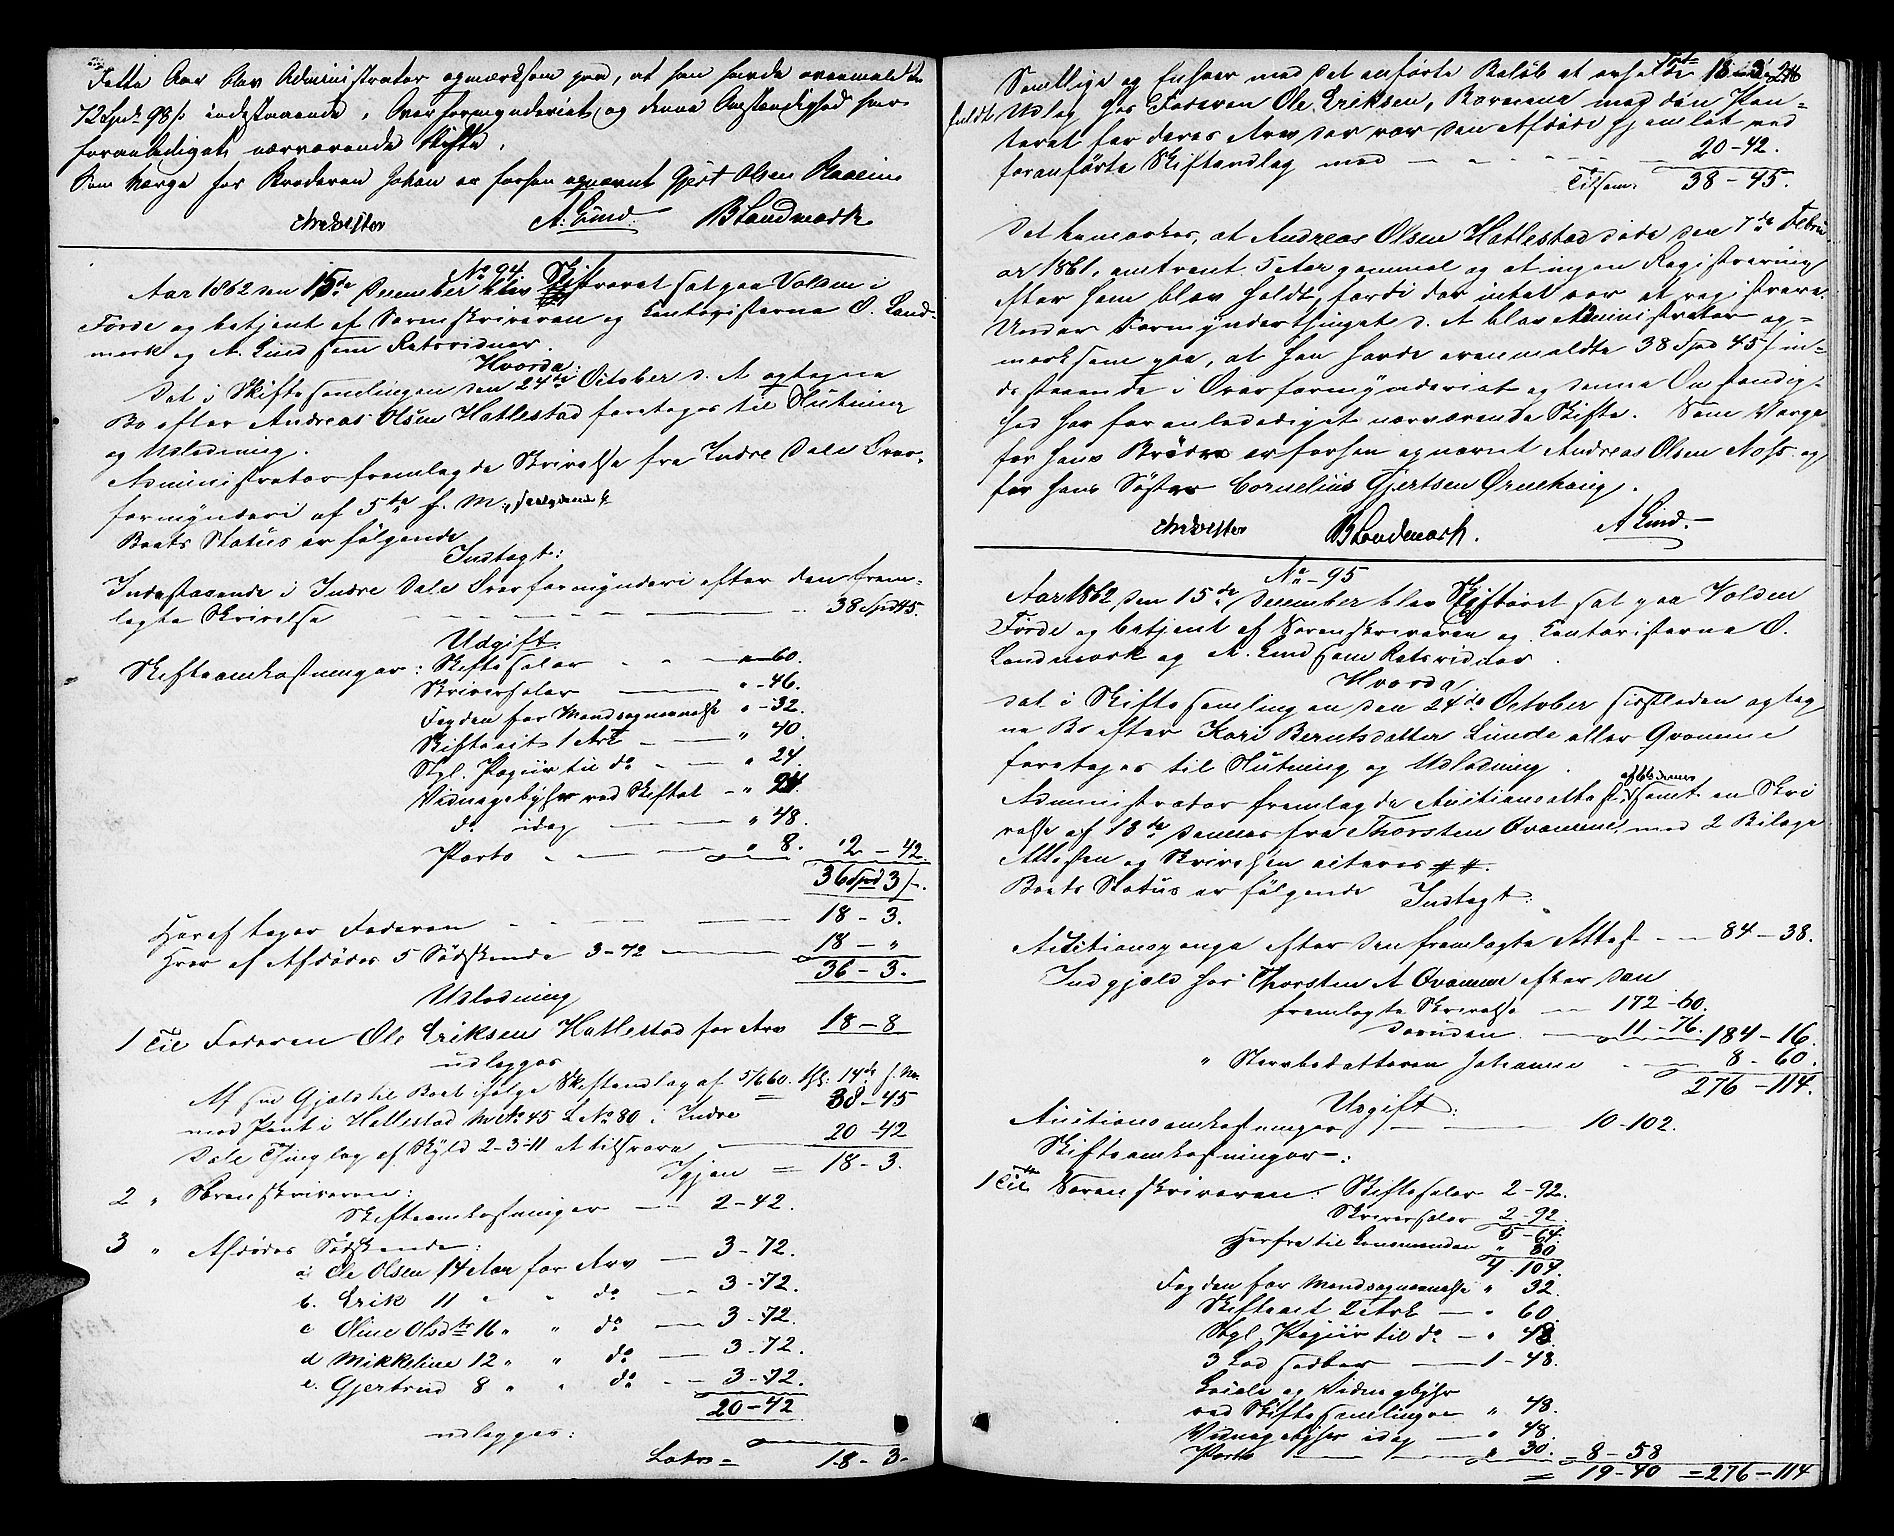 Dette Aar blev Administrator opmærksom paa, at han havde anmeldte
72 Spd. 98 s indestaaende i Overformynderiet, og denne Omstændighed har
foranlediget nærværende Skifte.
Som Værge for Broderen Johan er forhen opnævnt Gjert Olsen
A. Lind. B Landmark
No 94.
Aar 1862 den 15de December blev Skifteret sat paa Volden i
Førde og betjent af Sorenskriveren og Contoristerne O. Land-
mark og A. Lind som Retsvidner.
Hvorda:
det i Skiftesamlingen den 24de October d. A. optagne
Bo efter Andreas Olsen Hatlestad foretoges til Slutning
og Udlodning.
Administrator fremlagde Skrivelse fra Indre Dale Over-
formynderi af 5te f. M.,
Boets Status er følgende
Indtægt:
Indestaaende i Indre Dale Overformynderi efter den frem-
lagte Skrivelse 38 Spd 45.
Udgift.
Skifteomkostninger: Skiftesalær " - 60.
Skriversalær " - 46.
Fogden for Mandsopnævnelse " - 32.
Skifteact 1 Ark " 40
Stpl. Papiir til do " 24.
Vidnegebyhr ved Skiftet - " 24.
do. idag " 48.
Porto " 8. 2 - 42
36 Spd 3 s.
Heraf tager Faderen 18 - 3.
Hver af Afdødes 5 Sødskende 3-72 18 - "
36 - 3.
Udlodning
1 Til Faderen Ole Eriksen Hatlestad for Arv 18 - 8
udlægges
Af sin Gjæld til Boet ifølge Skifteudlæg af 5/6 60. 14de f. M.
med Pant i Hatlestad M No 45 L No 80 i Indre 38 - 45
Dale Thinglag af Skyld 2-3-11 at tilsvare 20 - 42
Igjen = 18 - 3.
2 " Sorenskriveren:
Skifteomkostninger 2 - 42.
3 " Afdødes Sødskende:
a) Ole Olsen 14 Aar for Arv 3 - 72.
b. Erik 11 " " do 3 - 72.
c Oline Olsdtr 16 " " do 3 - 72.
d Mikkeline 12 " " do 3 - 72.
e. Gjertrud 8 " " do 3 - 72.
20 - 42
udlægges:
Latus = 18 - 3.
Samtlige og Enhver med det anførte Beløb at erholde
Udlæg hos Faderen Ole Eriksen, Børnene med den Pan-
teret for deres Arv der var den Afdøde hjemlet ved
foranførte Skifteudlæg med 20 - 42.
Tilsam: 38 - 45.
Det bemærkes, at Andreas Olsen Hatlestad døde den 7de Febru
ar 1861, omtrent 5 Aar gammel og at ingen Registrering
efter ham blev holdt, fordi der intet var at registrere.
Under Formynderthinget d. A. blev Administrator op-
mærksom paa, at han havde ovenmeldte 38 Spd 45 s in-
destaaende i Overformynderiet og denne Omstændig-
hed har foranlediget nærværende Skifte. Som Værge
for hans Brødre er forhen opnævnt Andreas Olsen Aase og
for hans Søstre Cornelius Gjertsen Ørnehaug.
B Landmark. A Lind.
No - 95
Aar 1862 den 15de December blev Skifteret sat paa Volden
Førde og betjent af Sorenskriveren og Contoristerne O.
Landmark og A. Lind som Retsvidner.
Hvorda
det i Skiftesamlingen den 24de October sidstleden optag
ne Bo efter Kari Berntsdatter Lunde eller Qvamme
foretoges til Slutning og Udlodning.
Administrator fremlagde Auctionsattest samt en Skri
velse af 13de dennes fra Thorsten Qvamme, med 2 Bilage
Attesten og Skrivelsen citeres #.
Boets Status er følgende Indtægt:
Auctionspenge efter den fremlagte Attest 84 - 38.
Indgjæld hos Thorsten A Qvamme efter den
fremlagte Skrivelse 172 - 60.
desuden 11 - 76. 184 - 16.
" Stervbodatteren Johanne 8 - 60.
276 - 114.
Udgift:
Auctionsomkostninger 10 - 102.
Skifteomkostninger:
1 Til Sorenskriveren: Skiftesalær 2 - 92.
Skriversalær 2 - 92.
5 - 64.
Herfra til Lensmanden " 80
4 - 104.
Fogden for Mandsopnævnelse " 32.
Skifteact 2 Ark " 60.
Stpl. Papiir til do " 48.
1 - 48.
Locale og Vidnegebyhr
ved Skiftesamlingen " 48.
Vidnegebyhr idag " 48.
Porto " 30. 8 - 58
= 19 - 40 = 276 - 114